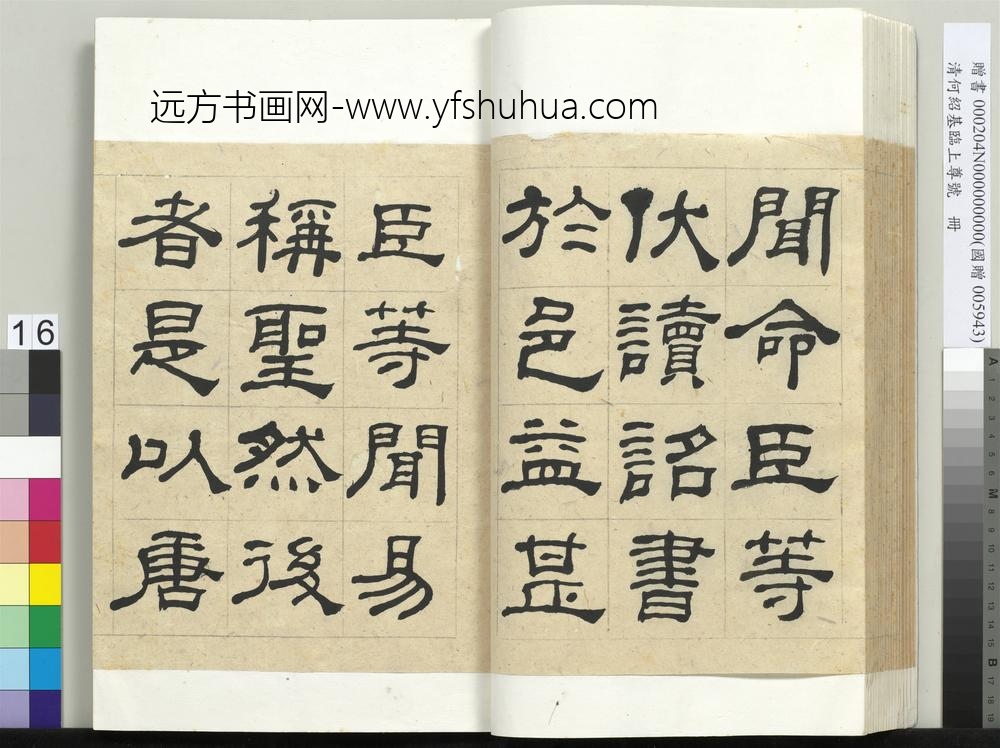 远方书画网-www.yfshuhua.com
聞命臣等
伏讀詔書
於邑益甚
臣等聞易
稱聖然後
者是以唐
贈書 000204N000000000(國贈 005943)
清何紹基臨上尊號 冊
16
A 1 2 3 4 5 6 M 8 9 10 11 12 13 14 15 B 17 18 19